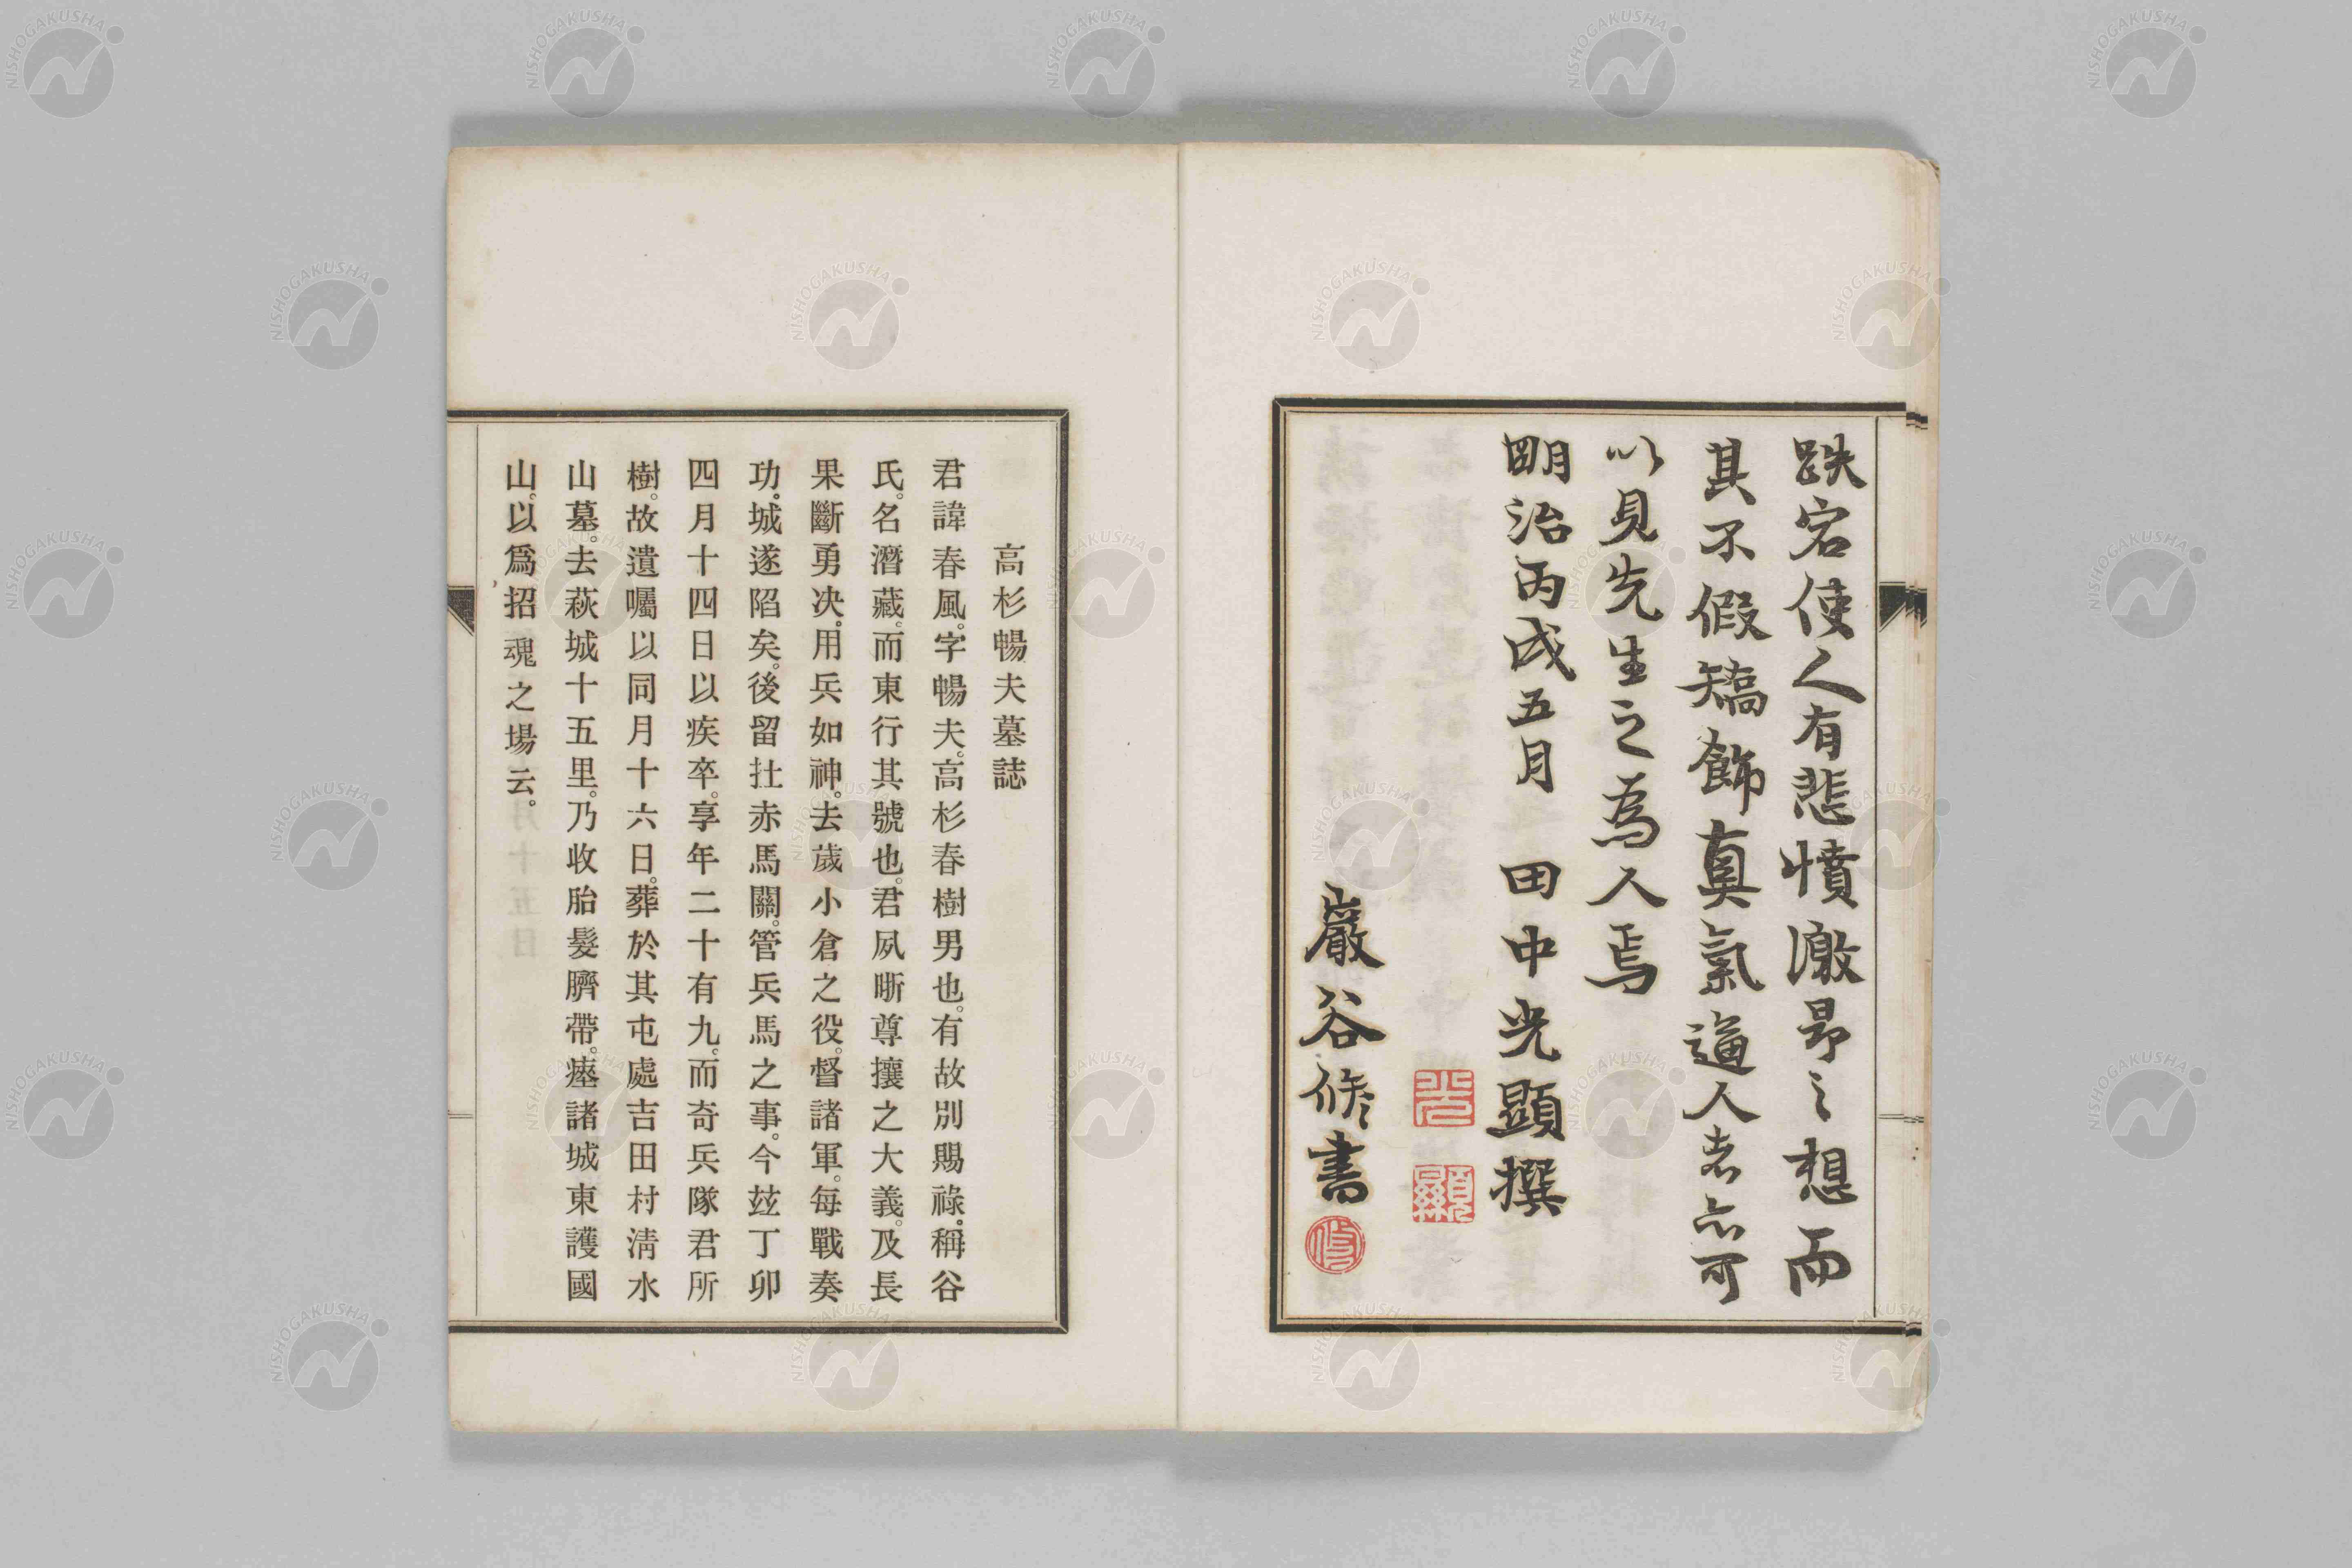 跌宕使人有悲憤激昂之想而
其不假矯飾真氣逼人者亦可
以見先生之為人焉
明治丙戌五月　田中光顕撰
光
顯
巖谷修書
修
高杉暢夫墓誌
君諱春風。字暢夫。高杉春樹男也。有故別賜祿。稱谷
氏。名潛藏。而東行其號也。君夙晣尊攘之大義。及長
果斷勇决。用兵如神。去歲小倉之役。督諸軍。每戰奏
功。城遂陷矣。後留扗赤馬關。管兵馬之事。今玆丁卯
四月十四日以疾卒。享年二十有九。而奇兵隊君所
樹。故遺囑以同月十六日。葬於其屯處吉田村淸水
山墓。去萩城十五里。乃收胎髮臍帶。瘞諸城東護國
山。以爲招魂之場云。
NISHOGAKUSHA